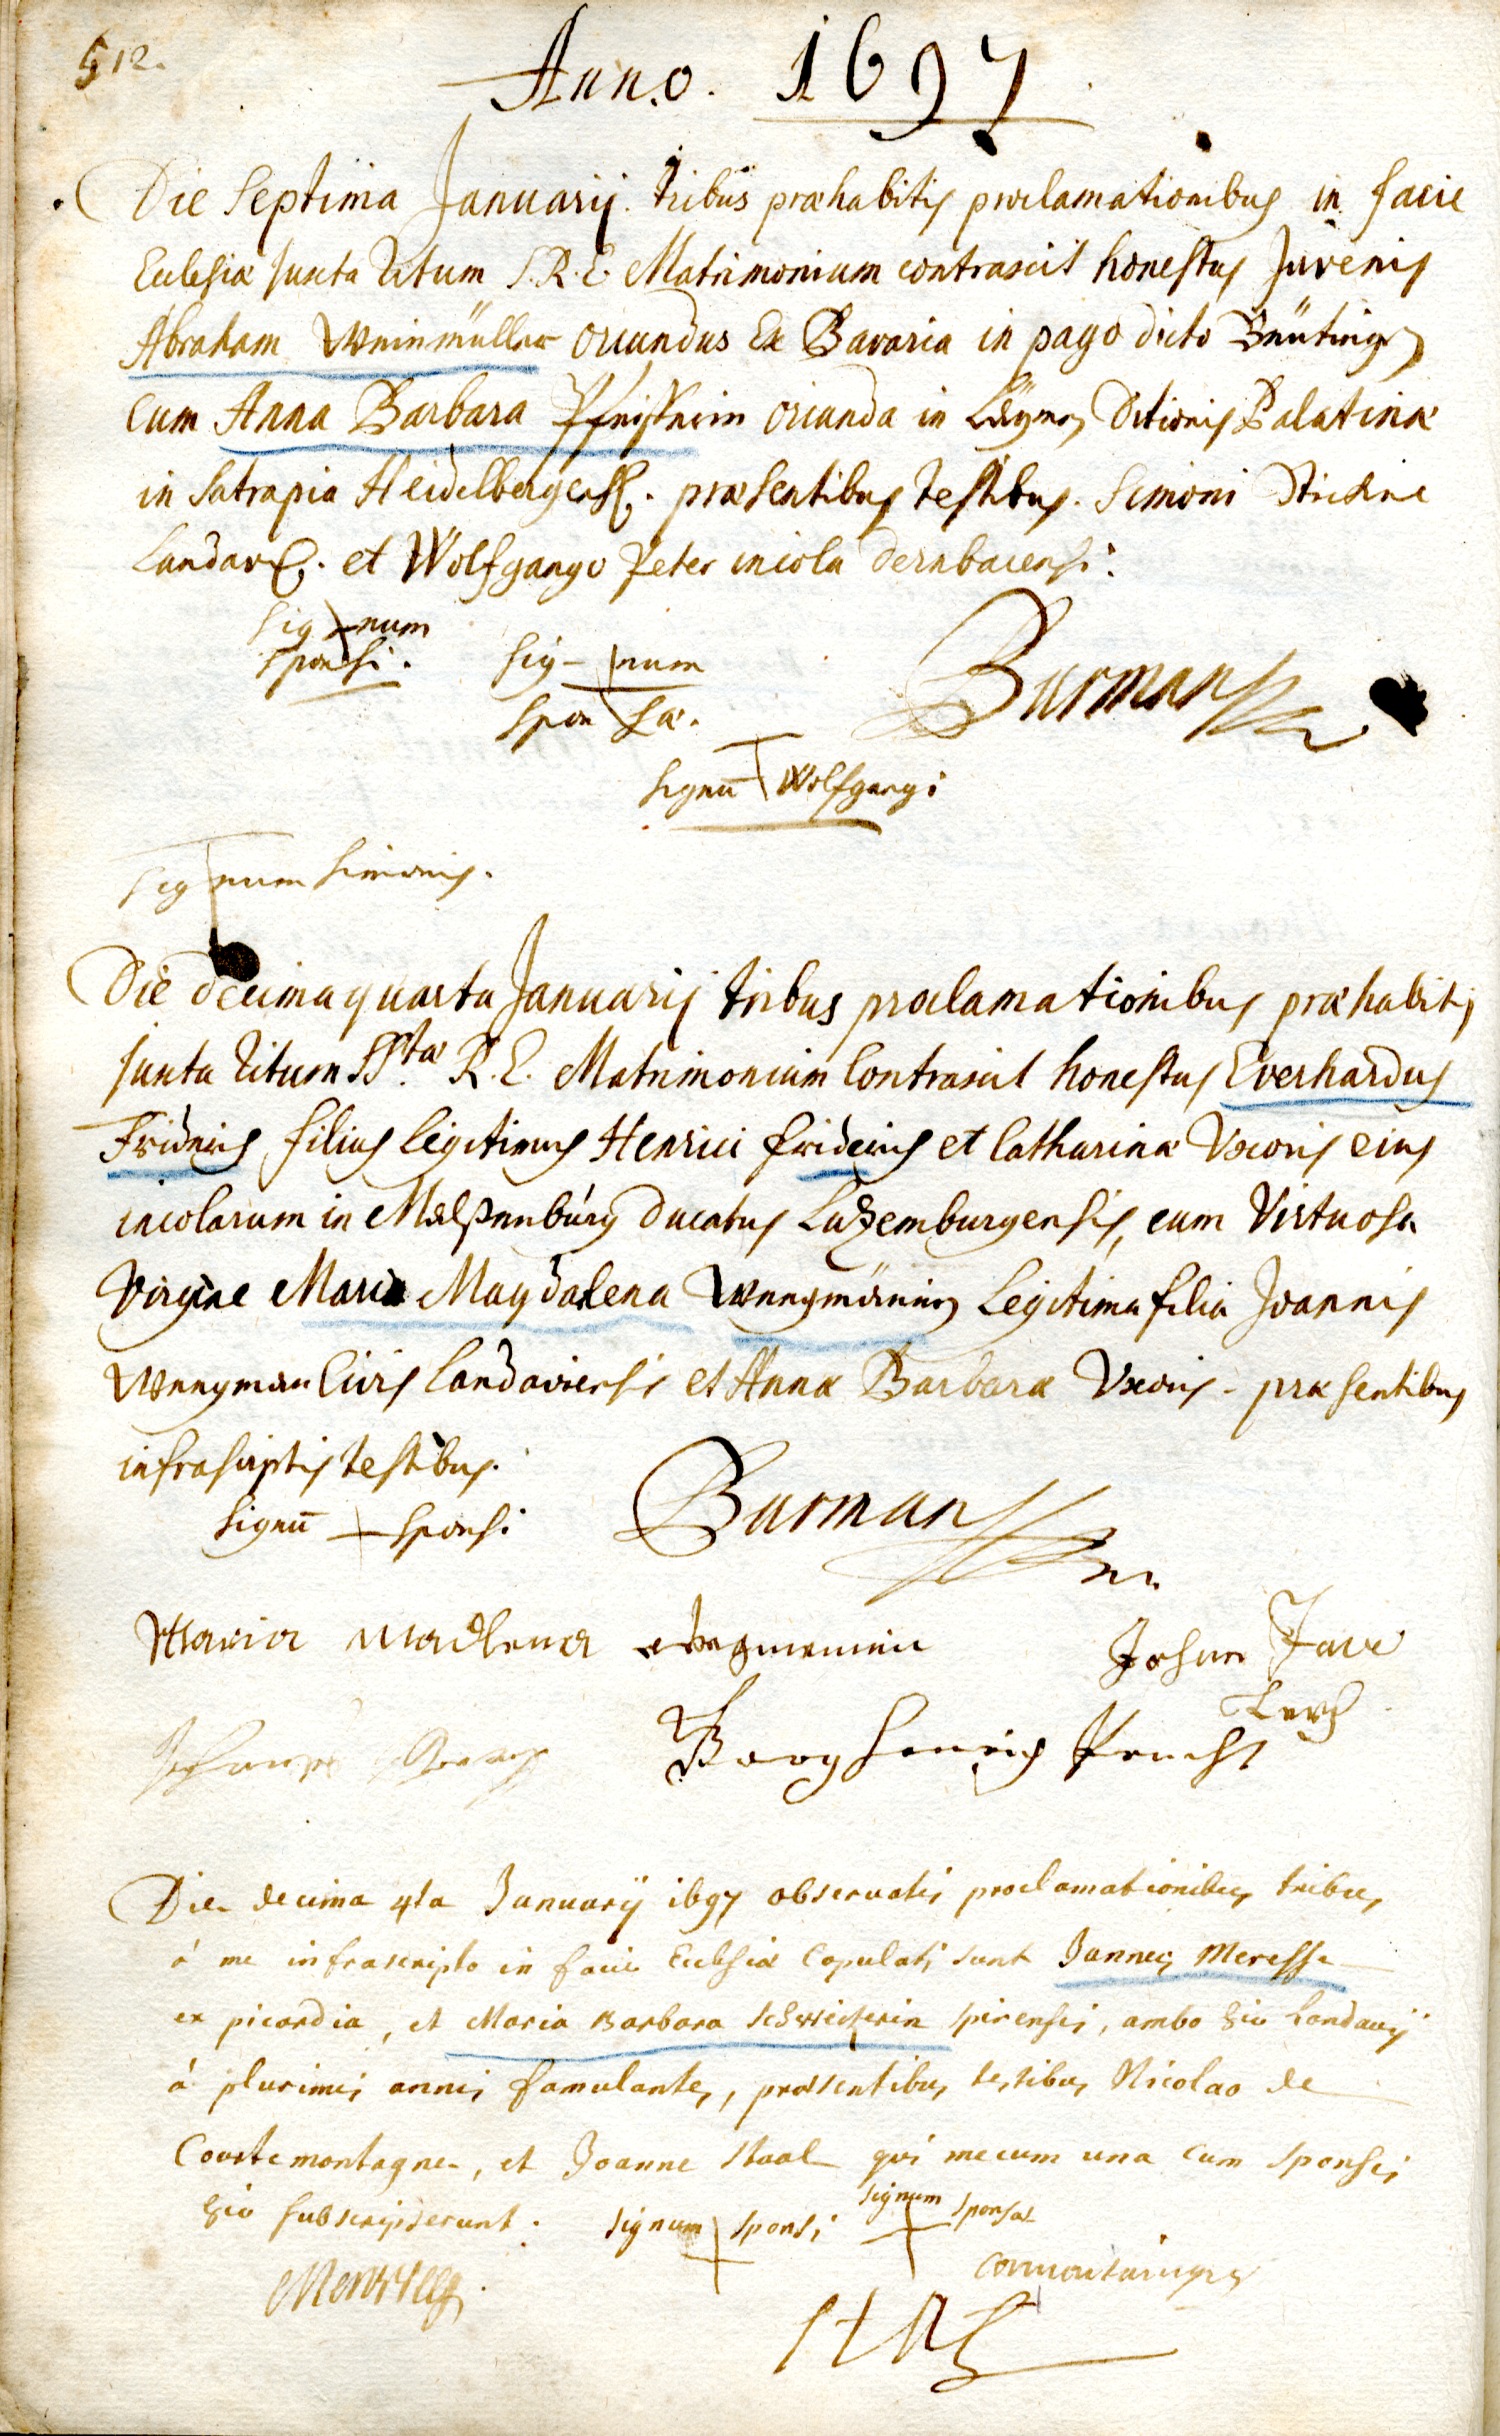 512.
Anno. 1697
Die Septima Januarij. tribus præhabitis proclamationibus in facie
Ecclesiæ juxta Ritum S. R. E. Matrimonium contraxit honestus Juvenis
Abraham Weinmüller oriundus Ex Bavaria in pago dicto
cum Anna Barbara orianda in Ditionis Palatinæ
in Satrapia Heidelbergens. præsentibus testibus. Simoni
Landav. et Wolfgango Peter incola dernbacensi.
Sig num
sponsi.
Sig- num
Spon sæ.
Burman
Signū Wolfgangi
Sig num Simonis.
Die decima quarta Januarij tribus proclamationibus præhabitis
juxta Ritum SStæ R. E. Matrimonium Contraxit honestus Everhardus
Friderich filius legitimus Henrici friderich et Catharinæ Uxoris eius
incolarum in ducatus Luxemburgensis, cum Virtuosa
Virgine Maria Magdalena Legitima filia Joannis
Civis Landaviensis et Annæ Barbaræ Uxoris - præsentibus
infrascriptis testibus.
Signū sponsi
Burman
Maria Madlena
Johan
henrich
Die decima 4ta Januarij 1697 observatis proclamationibus tribus,
á me infrascripto in facie Ecclesiæ Copulati sunt Jannes Meresse
ex picardia, et Maria Barbara Schwicterin spirensis, ambo hic Landavij
á plurimis annis famulantes, præsentibus testibus Nicolao de
Courtemontagne, et Joanne Staal qui mecum una cum sponsis
hic subscripserunt.
signum sponsi
signum sponsæ